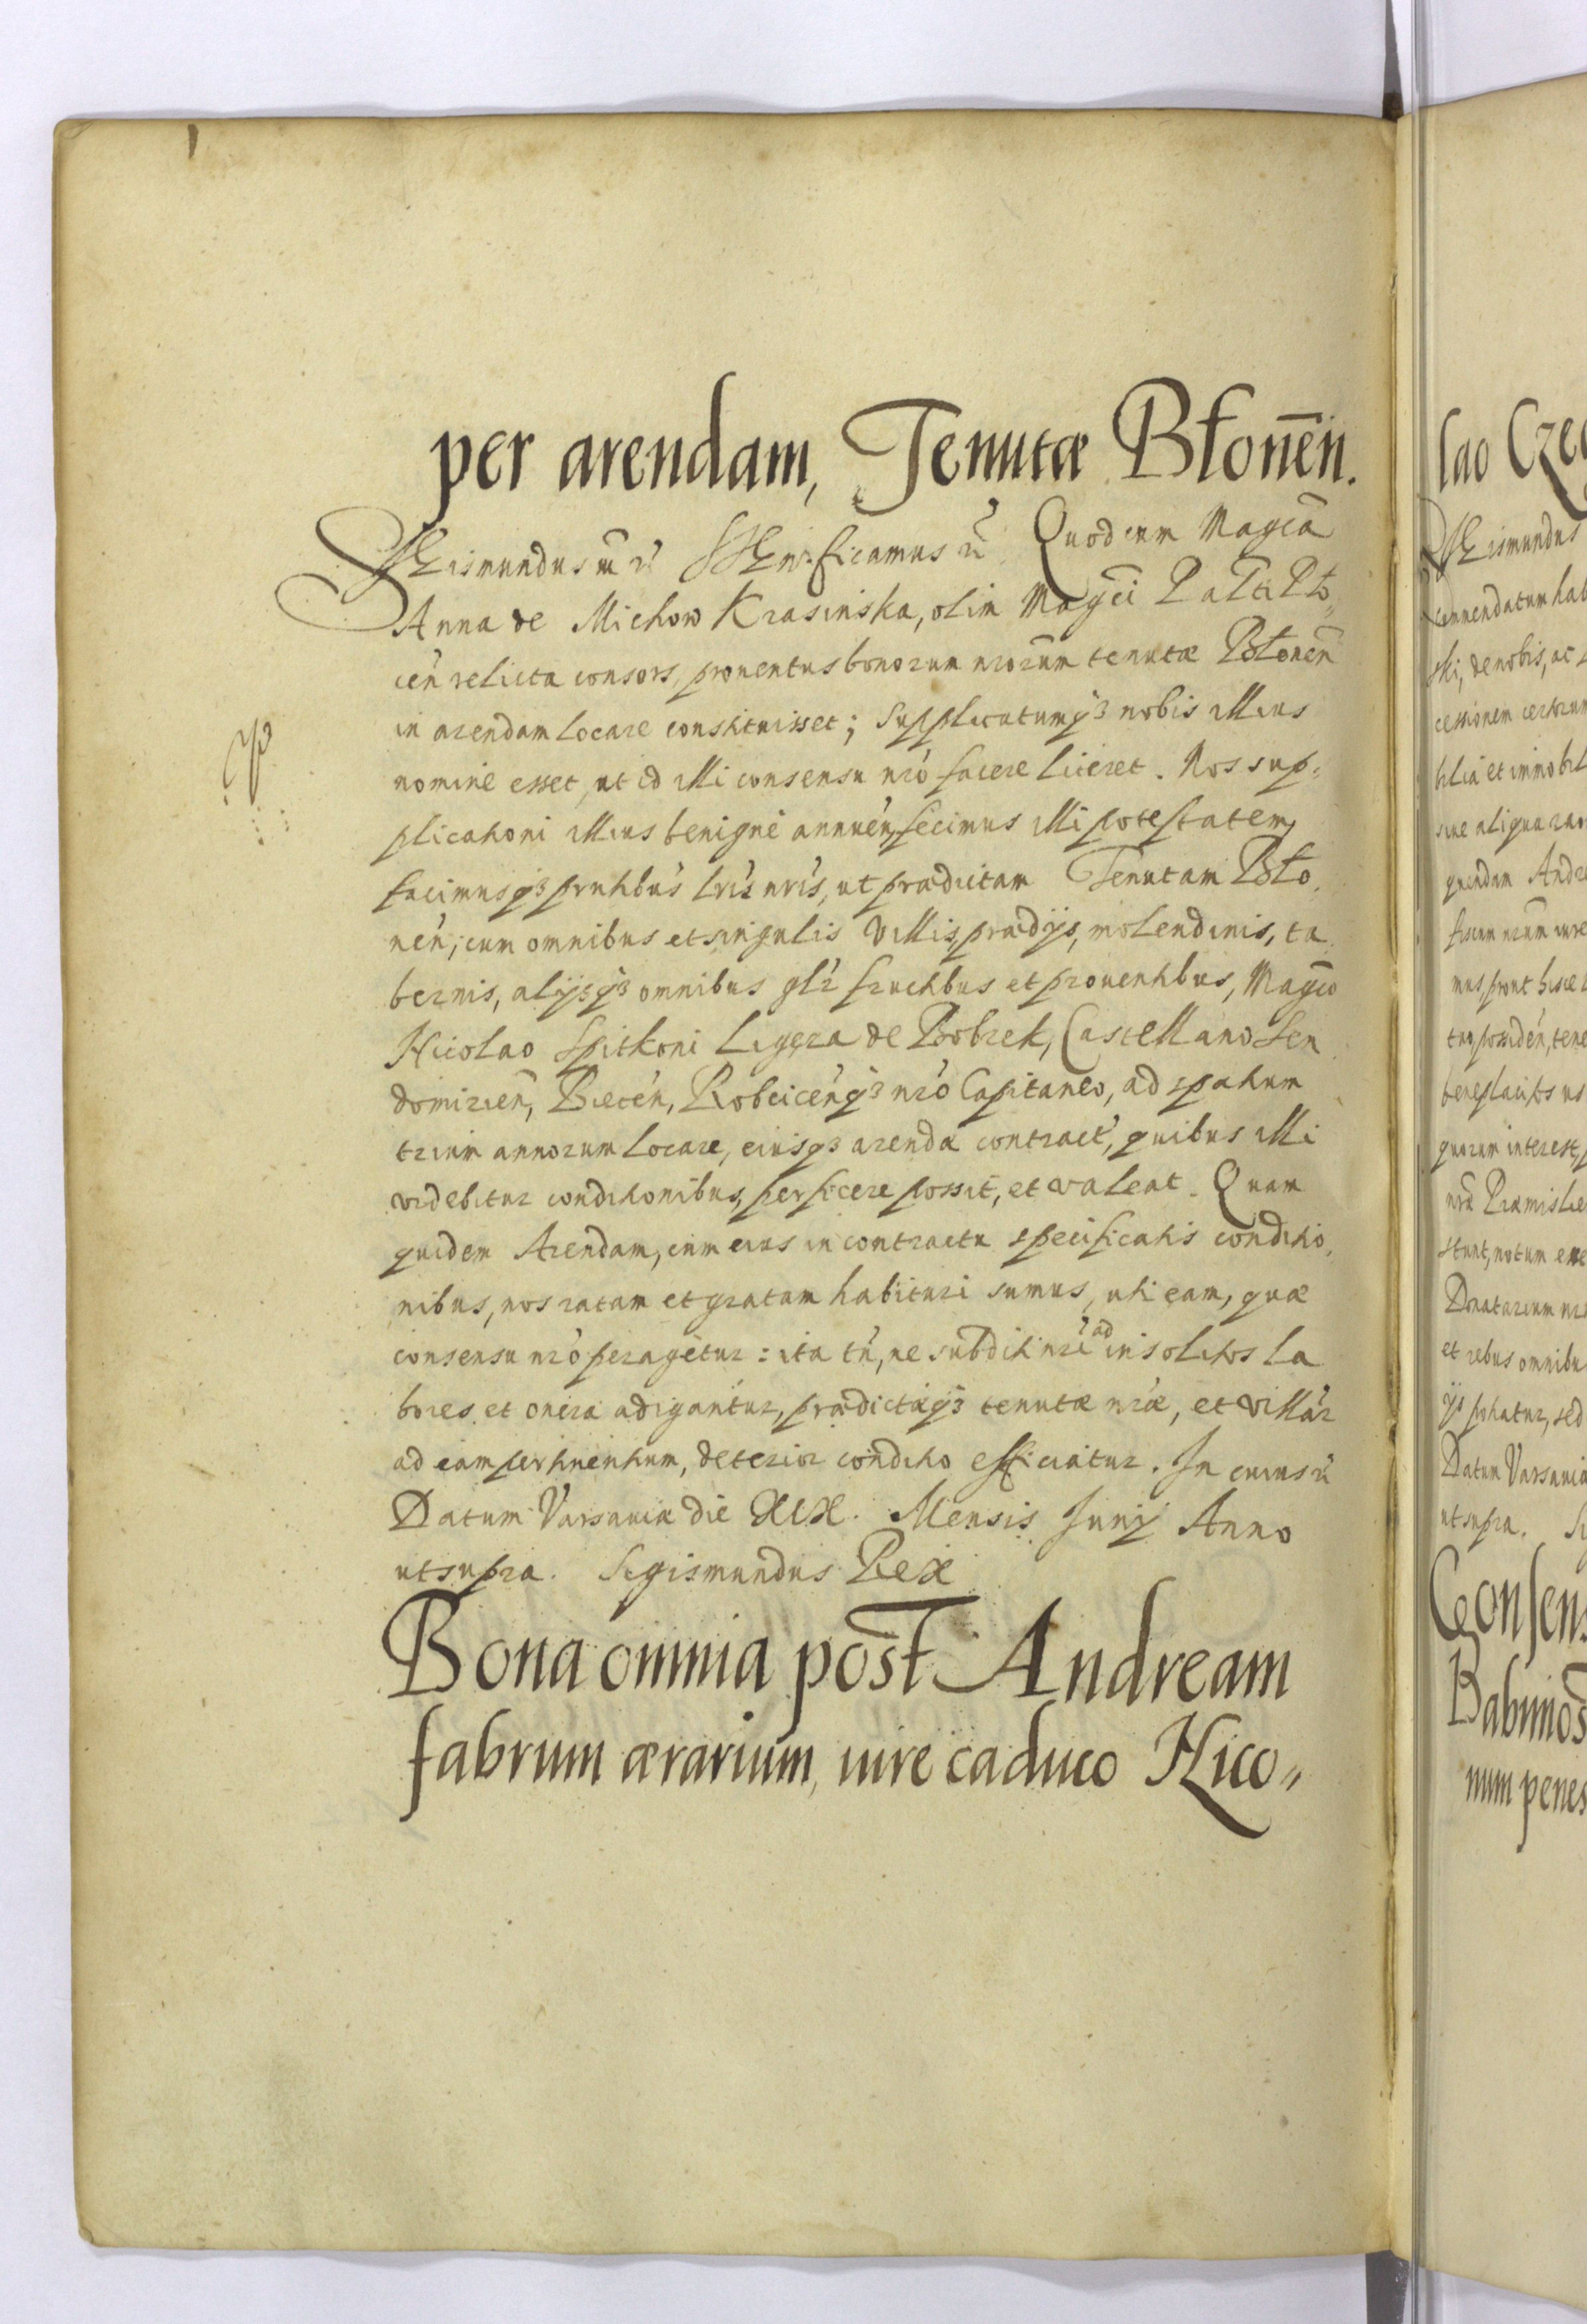 per arendam, Tenutæ Błonēn.
Sigismundus Significamus Quod cum Magcā
Anna de Michow Krasinska, olim Magci Palti Plo-
cen relicta consors, prouentus bonorum nrorum tenutæ Błonen
in arendam locare constituisset; Supplicatumq3 nobis illius
nomine esset, ut id illi consensu nro facere liceret. Nos sup-
plicationi illius benigne annuen, fecimus illi potestatem,
facimusq3 pntibus lris nris, ut prædictam Tenutam Bło
nen, cum omnibus et singulis villis, prædijs, molendinis, ta
bernis, alijsq3 omnibus glr fructibus et prouentibus, Magco
Nicolao Spitkoni Ligęza de Bobrek, Castellano Sen
domirien, Biecen, Robcicenq3 nro Capitaneo, ad spatium
trium annorum locare, eiusq3 arendæ contract, quibus illi
videbitur conditionibus, perficere possit, et valeat. Quam
quidem Arendam, cum eius in contractu specificatis conditio
nibus, nos ratam et gratam habituri sumus, uti eam, quæ
consensu nro peragetur: ita tn, ne subditi nri ad insolitos la
bores et onera adigantur, prædictæq3 tenutæ nræ, et villar
ad eam pertinentium, deterior conditio efficiatur. In cuius
Datum Varsauiæ die XIX. Mensis Junij Anno
ut supra. Sigismundus Rex
Bona omnia post Andream
fabrum ærarium, iure caduco Nico„
lao
Sigismundus
ski, de nobis, ac
cessionem
bilia et immobil
siue aliqua
quendam
mus, prout hisce
quorum interest,
et rebus omnibu
Datum Varsauiæ
ut supra.
Consens
num penes